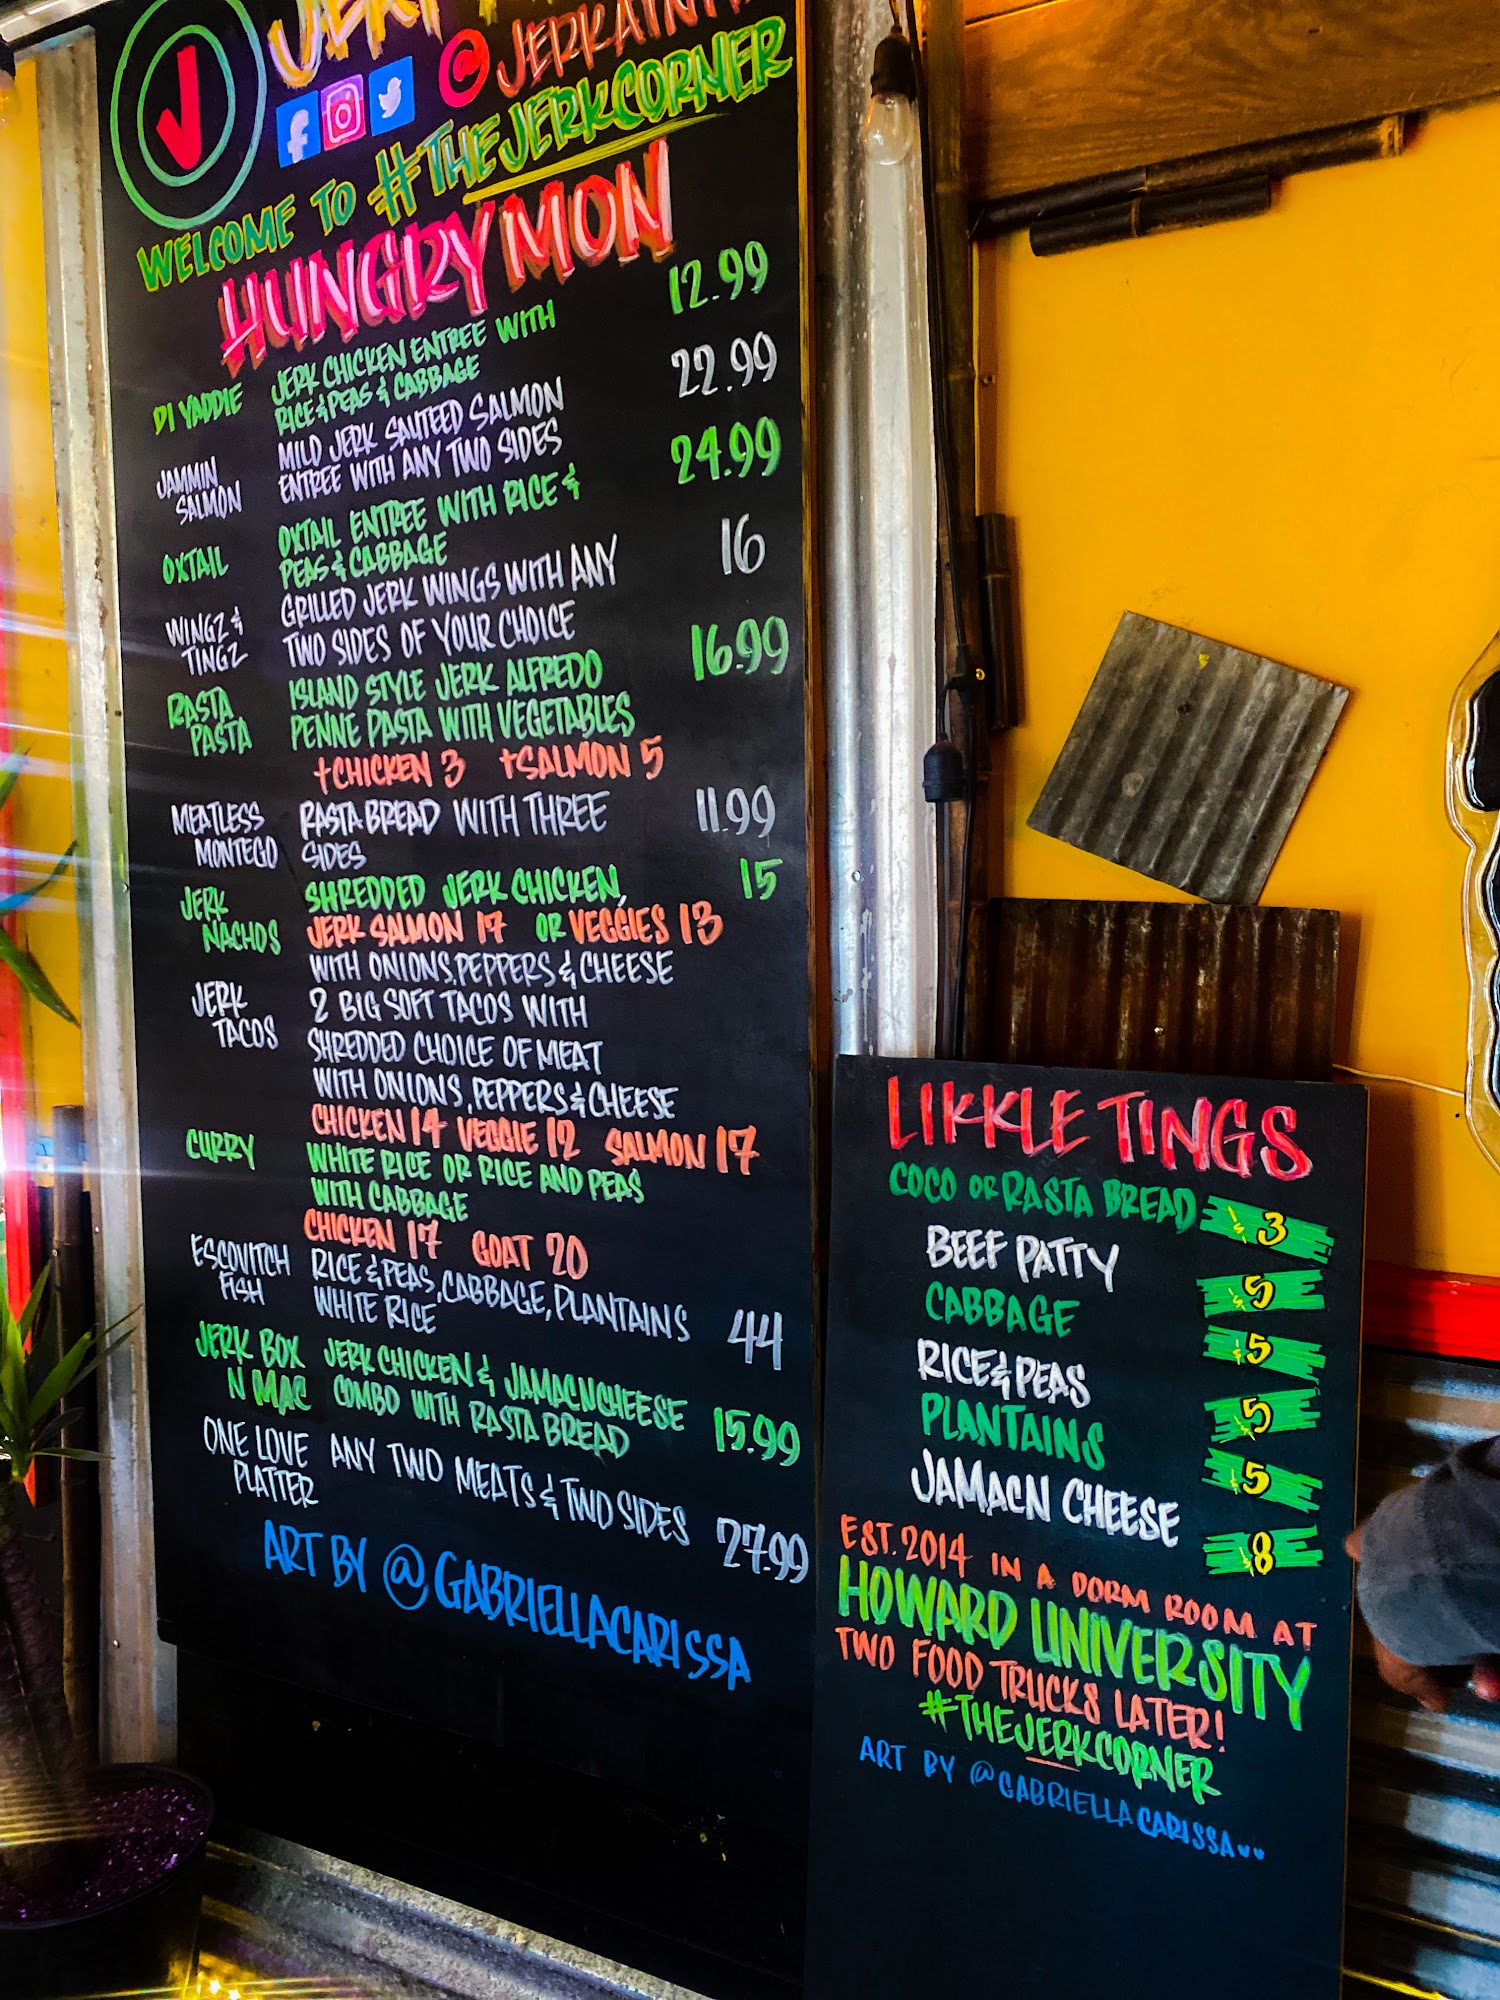 JERK
@JERKATNITE
WELCOME TO #THEJERKCORNER
HUNGRY MON
DI YADDIE JERK CHICKEN ENTREE WITH 12.99
RICE & PEAS & CABBAGE
JAMMIN SALMON MILD JERK SAUTEED SALMON 22.99
ENTREE WITH ANY TWO SIDES
OXTAIL OXTAIL ENTREE WITH RICE & 24.99
PEAS & CABBAGE
WINGZ & TINGZ GRILLED JERK WINGS WITH ANY 16
TWO SIDES OF YOUR CHOICE
RASTA PASTA ISLAND STYLE JERK ALFREDO 16.99
PENNE PASTA WITH VEGETABLES
+CHICKEN 3 +SALMON 5
MEATLESS MONTEGO RASTA BREAD WITH THREE 11.99
SIDES
JERK NACHOS SHREDDED JERK CHICKEN, 15
JERK SALMON 17 OR VEGGIES 13
WITH ONIONS, PEPPERS & CHEESE
JERK TACOS 2 BIG SOFT TACOS WITH
SHREDDED CHOICE OF MEAT
WITH ONIONS, PEPPERS & CHEESE
CHICKEN 14 VEGGIE 12 SALMON 17
CURRY WHITE RICE OR RICE AND PEAS
WITH CABBAGE
CHICKEN 17 GOAT 20
ESCOVITCH FISH RICE & PEAS, CABBAGE, PLANTAINS 44
WHITE RICE
JERK BOX N MAC JERK CHICKEN & JAMACNCHEESE 15.99
COMBO WITH RASTA BREAD
ONE LOVE PLATTER ANY TWO MEATS & TWO SIDES 27.99
ART BY @GABRIELLACARISSA
LIKKLE TINGS
COCO OR RASTA BREAD $3
BEEF PATTY $5
CABBAGE $5
RICE & PEAS $5
PLANTAINS $5
JAMACN CHEESE $8
EST. 2014 IN A DORM ROOM AT
HOWARD UNIVERSITY
TWO FOOD TRUCKS LATER!
#THEJERKCORNER
ART BY @GABRIELLACARISSA